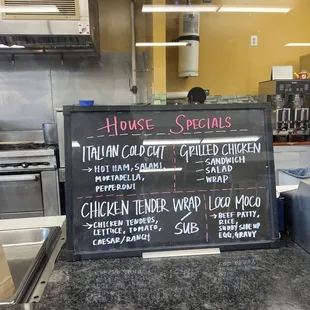 House Specials
Italian Cold Cut
→ Hot Ham, Salami,
Mortadella,
Pepperoni
Grilled Chicken
→ Sandwich
→ Salad
→ Wrap
Chicken Tender Wrap / Sub
→ Chicken Tenders,
Lettuce, Tomato,
Caesar/Ranch
Loco Moco
→ Beef Patty,
Rice,
Sunny Side Up
Egg, Gravy